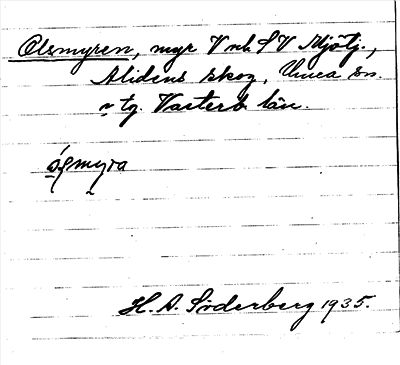 Olsmyren, myr V och SV Mjölj.,
Alidens skog, Umeå sn.
o tg. Västerb. län.
myra
H. A. Söderberg 1935.